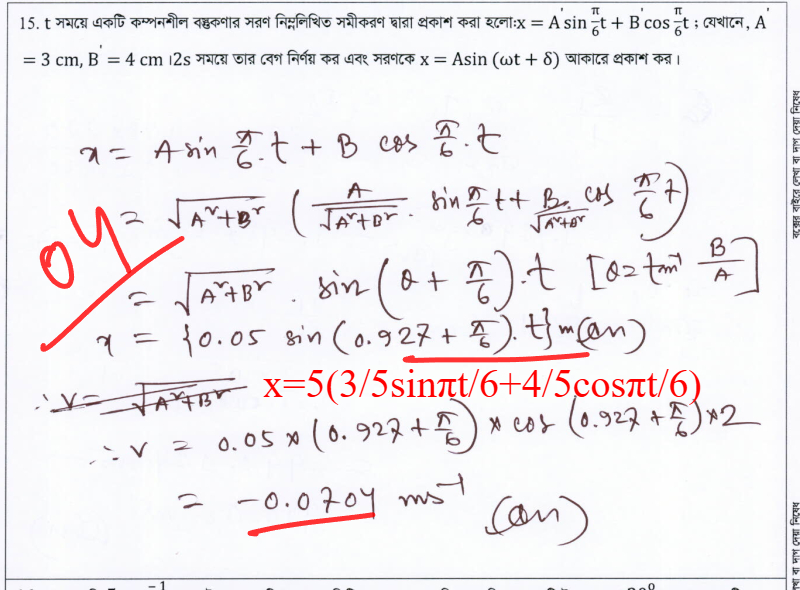 15. t সময়ে একটি কম্পনশীল বস্তুকণার সরণ নিম্নলিখিত সমীকরণ দ্বারা প্রকাশ করা হলো:x = A'sin π/6 t + B'cos π/6 t ; যেখানে, A'
= 3 cm, B' = 4 cm ।2s সময়ে তার বেগ নির্ণয় কর এবং সরণকে x = Asin (ωt + δ) আকারে প্রকাশ কর।
x = A sin π/6 . t + B cos π/6 . t
= √A²+B² ( A/√A²+B² . sin π/6 t + B/√A²+B² . cos π/6 t )
04
= √A²+B² . sin ( θ + π/6 ) . t [ θ = tan⁻¹ B/A ]
x = { 0.05 sin ( 0.927 + π/6 ) . t } m (an)
∴ v = √A²+B²
x=5(3/5sinπt/6+4/5cosπt/6)
∴ v = 0.05 × ( 0.927 + π/6 ) × cos ( 0.927 + π/6 ) × 2
= -0.0704 ms⁻¹ (an)
বক্সের বাইরে লেখা বা দাগ দেয়া নিষেধ